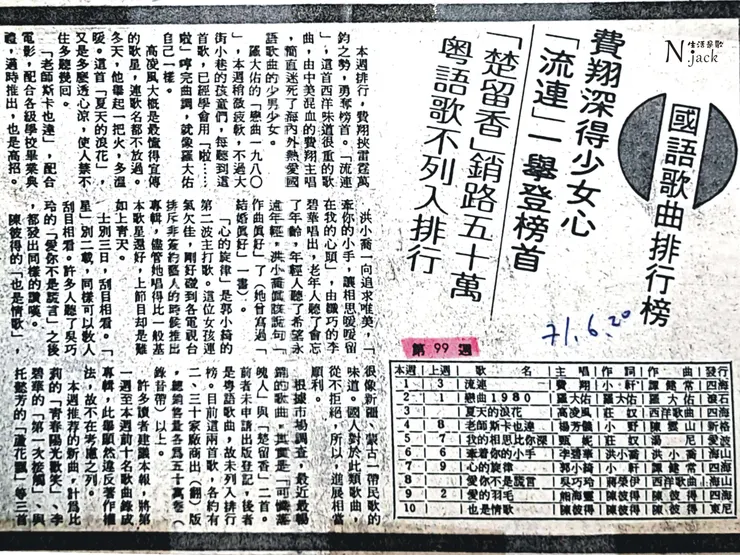 N.jack
生活參歌
國語歌曲排行榜
費翔深得少女心
「流連」一舉登榜首
「楚留香」銷路五十萬
粵語歌不列入排行
71.6.20
本週排行,費翔挾雷霆萬
鈞之勢,勇奪榜首。「流連
」,這首西洋味道很重的歌
曲,由中美混血的費翔主唱
,簡直迷死了海內外熱愛國
語歌曲的少男少女。
羅大佑的「戀曲一九八〇
」,本週稍微疲軟,不過大
街小巷的孩童們,每聽到這
首歌,已經學會用「啦……
啦」哼完曲調,就像羅大佑
自己一樣。
高凌風大概是最懂得宣傳
的歌星,連歌名都不放過。
冬天,他舉起一把火,多溫
暖。這首「夏天的浪花」,
又是多麼透心涼,使人禁不
住多聽幾回。
「老師斯卡也達」,配合
電影,配合各級學校畢業典
禮,適時推出,也是高招。
洪小喬一向追求唯美,「
牽你的小手,讓相思暖暖留
在我的心頭」,由纖巧的李
碧華唱出,老年人聽了會忘
了年齡,年輕人聽了希望永
遠年輕,洪小喬真該說句「
作曲真好」了(她曾寫過「
結婚真好」一書)。
「心的旋律」是郭小綺的
第二波主打歌。這位女孩運
氣欠佳,剛好碰到各電視台
排斥非簽約藝人的時候推出
專輯,儘管她唱得比一般基
本歌星還好,上節目却是難
如上青天。
士別三日,刮目相看。「
星」別二載,同樣可以教人
刮目相看。許多人聽了吳巧
玲的「愛你不是謊言」之後
,都發出同樣的讚嘆。
陳彼得的「也是情歌」,
很像新疆、蒙古一帶民歌的
味道。國人對於此類歌曲,
從不拒絕,所以,進展相當
順利。
根據市場調查,最近最暢
銷的歌曲,其實是「可憐落
魄人」與「楚留香」二首。
前者未申請出版登記,後者
是粵語歌曲,故未列入排行
榜。目前這兩首歌,各約有
二、三十家廠商出(翻)版
,總銷售量各為五十萬卷(
錄音帶)以上。
許多讀者建議本報,將第
一週至本週前十名歌曲錄成
專輯,此舉顯然違反著作權
法,故不在考慮之列。
本週推荐的新曲,計為比
莉的「青春陽光歡笑」、李
碧華的「第一次接觸」、與
托懿芳的「蘆花飄」等三首
第99週
本週 上週 歌名 主唱 作詞 作曲 發行
1 3 流連 費翔 小軒 譚健常 四海
2 1 戀曲1980 羅大佑 羅大佑 羅大佑 滾石
3 夏天的浪花 高凌風 莊奴 西洋歌曲 四海
4 8 老師斯卡也達 楊芳儀 小野 陳雲山 新格
5 7 我的相思比你深 甄妮 莊奴 湯尼 愛波
6 6 牽着你的小手 李碧華 洪小喬 洪小喬 海山
7 9 心的旋律 郭小綺 小軒 譚健常 四海
8 愛你不是謊言 吳巧玲 蔣榮伊 西洋歌曲 海山
9 2 愛的羽毛 熊海靈 陳彼得 陳彼得 四海
10 也是情歌 陳彼得 陳彼得 陳彼得 東尼